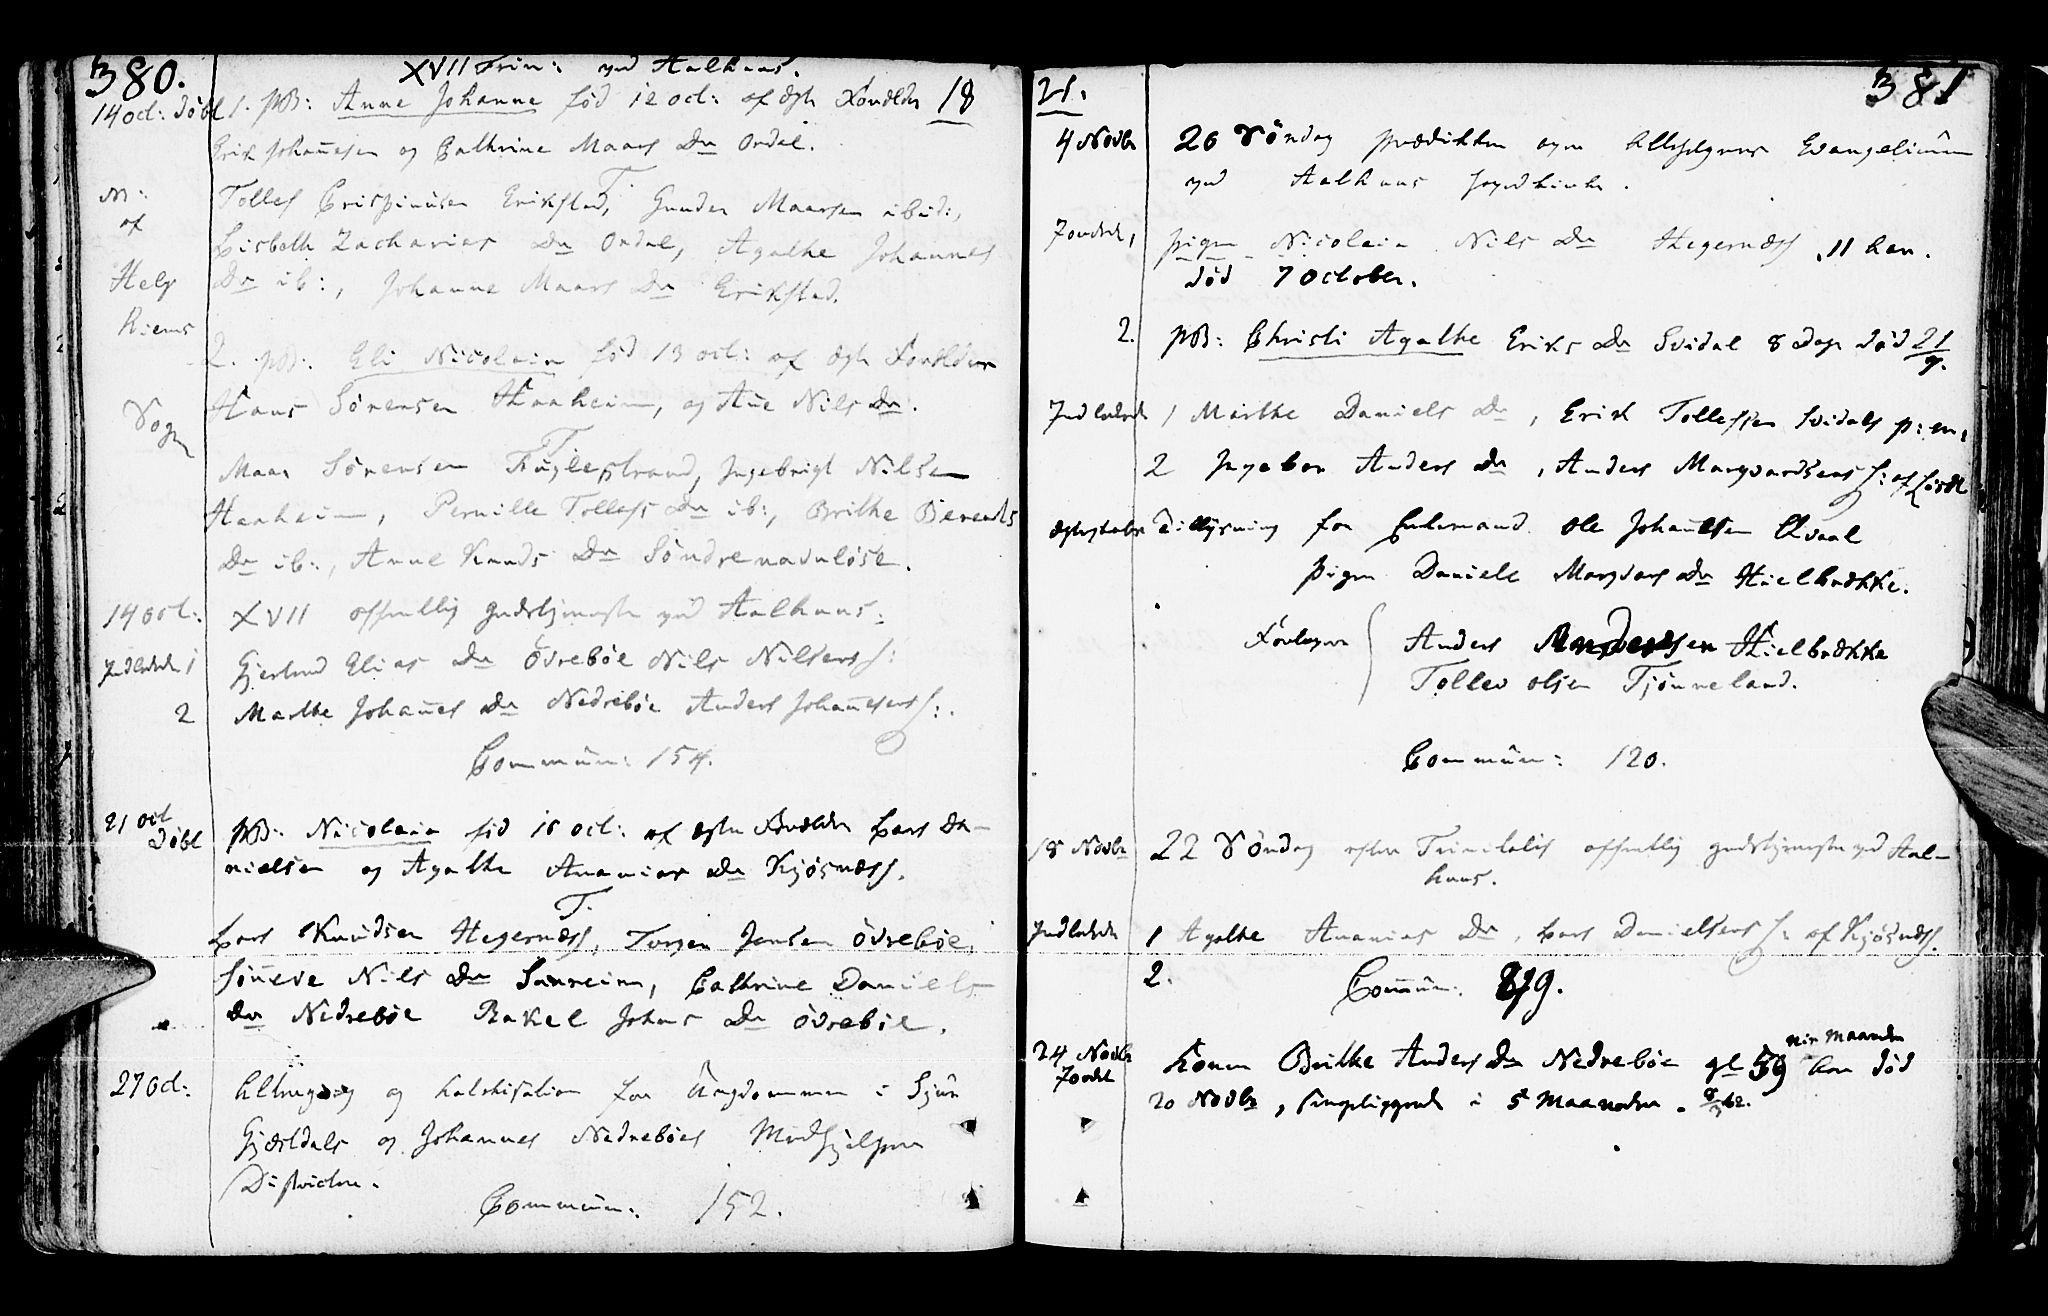 380.
XVII Trin: ved Aalhuus.
14 oct: Døbt 1. pB: Anne Johanne fød 12 oct: af ægte Forældre 18
Erik Johannesen og Cathrine Maars Dr Ordal.
T.
Tollef Crispinusen Erikstad, Gunder Maarsen ibid:,
Lisbeth Zacharias Dr Ordal, Agathe Johannes
Dr ib:, Johanne Maars Dr Erikstad.
N:
af
Helg
hiems
Sogn
2. pB: Eli Nicolaia fød 13 oct: af ægte Forældre
Hans Sørensen Haaheim, og Ane Nils Dr.
T.
Maar Sørensen Fuglestrand, Ingebrigt Nilsen
Haaheim, Pernille Tollefs Dr ib:, Brithe Berents
Dr ib:, Anne Knuds Dr Søndrenadnløse.
14 oct: XVII offentlig gudstjeneste ved Aalhuus:
Indledede 1 Gjertrud Elias Dr Øvrebøe Nils Nilsens H:
2 Marthe Johanes Dr Nedrebøe Anders Johanesens H:.
Commun: 154.
21 oct
Døbt pB: Nicolaia fød 18 oct: af ægte Forældre Lars Da-
nielsen og Agathe Ananias Dr Kjøsnæss.
T.
Lars Knudsen Hegernæss, Torgen Jensen Øvrebøe,
Søneve Nils Dr Sanreim, Cathrine Daniels
Dr Nedrebøe Rakel Johans Dr Øvrebøe.
27 Oct: og Kathekisation for Ungdommen i Sjur
Gjæsdals og Johannes Nedrebøes Medhjelper
Districter.
Commun: 152.
21.
381
4 Novbr 20 Søndag prædikken over Allehelgens Evangelium
ved Aalhuus Sognekirke.
Jordede 1 pigen Nicolaia Nils Dr Hegernæss, 11 Aar.
død 7 October.
2. pB: Christi Agathe Eriks Dr Svidal 8 Dage død 21/9.
Indledede 1 Marthe Daniels Dr, Erik Tollefsen Svidals
2 Ingebor Anders Dr, Anders Marqvardsens H: af
Ægteskabs Tillysning for Enkemand Ole Johannesen Qvaal
pigen Daniele Marqvars Dr Hielbrække.
Forlovere Anders Andersen Hielbrække
Tollev Olsen Tjønneland.
Commun: 120.
18 Novbr 22 Søndag efter Trinitatis offentlig gudstjeneste ved Aal-
huus.
Indledede 1 Agathe Ananias Dr, Lars Danielsens H: af Kjøsnæss.
2. Commun: 89.
24 Novbr
Jordet Konen Brithe Anders Dr Nedrebøe gl 59 Aar nie Maaneder død
20 Novbr, sengeliggende i 5 Maaneder.